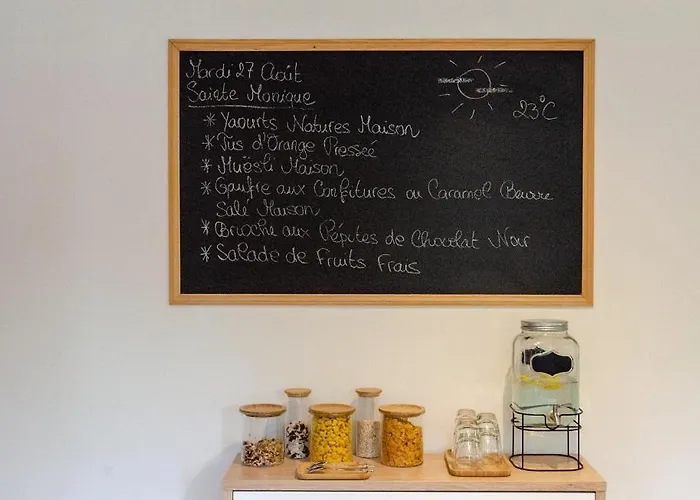 Mardi 27 Août
Sainte Monique
23°C
* Yaourts Natures Maison
* Jus d'Orange Presseé
* Muësli Maison
* Gaufre aux Confitures ou Caramel Beurre
Salé Maison
* Brioche aux Pépites de Chocolat Noir
* Salade de Fruits Frais